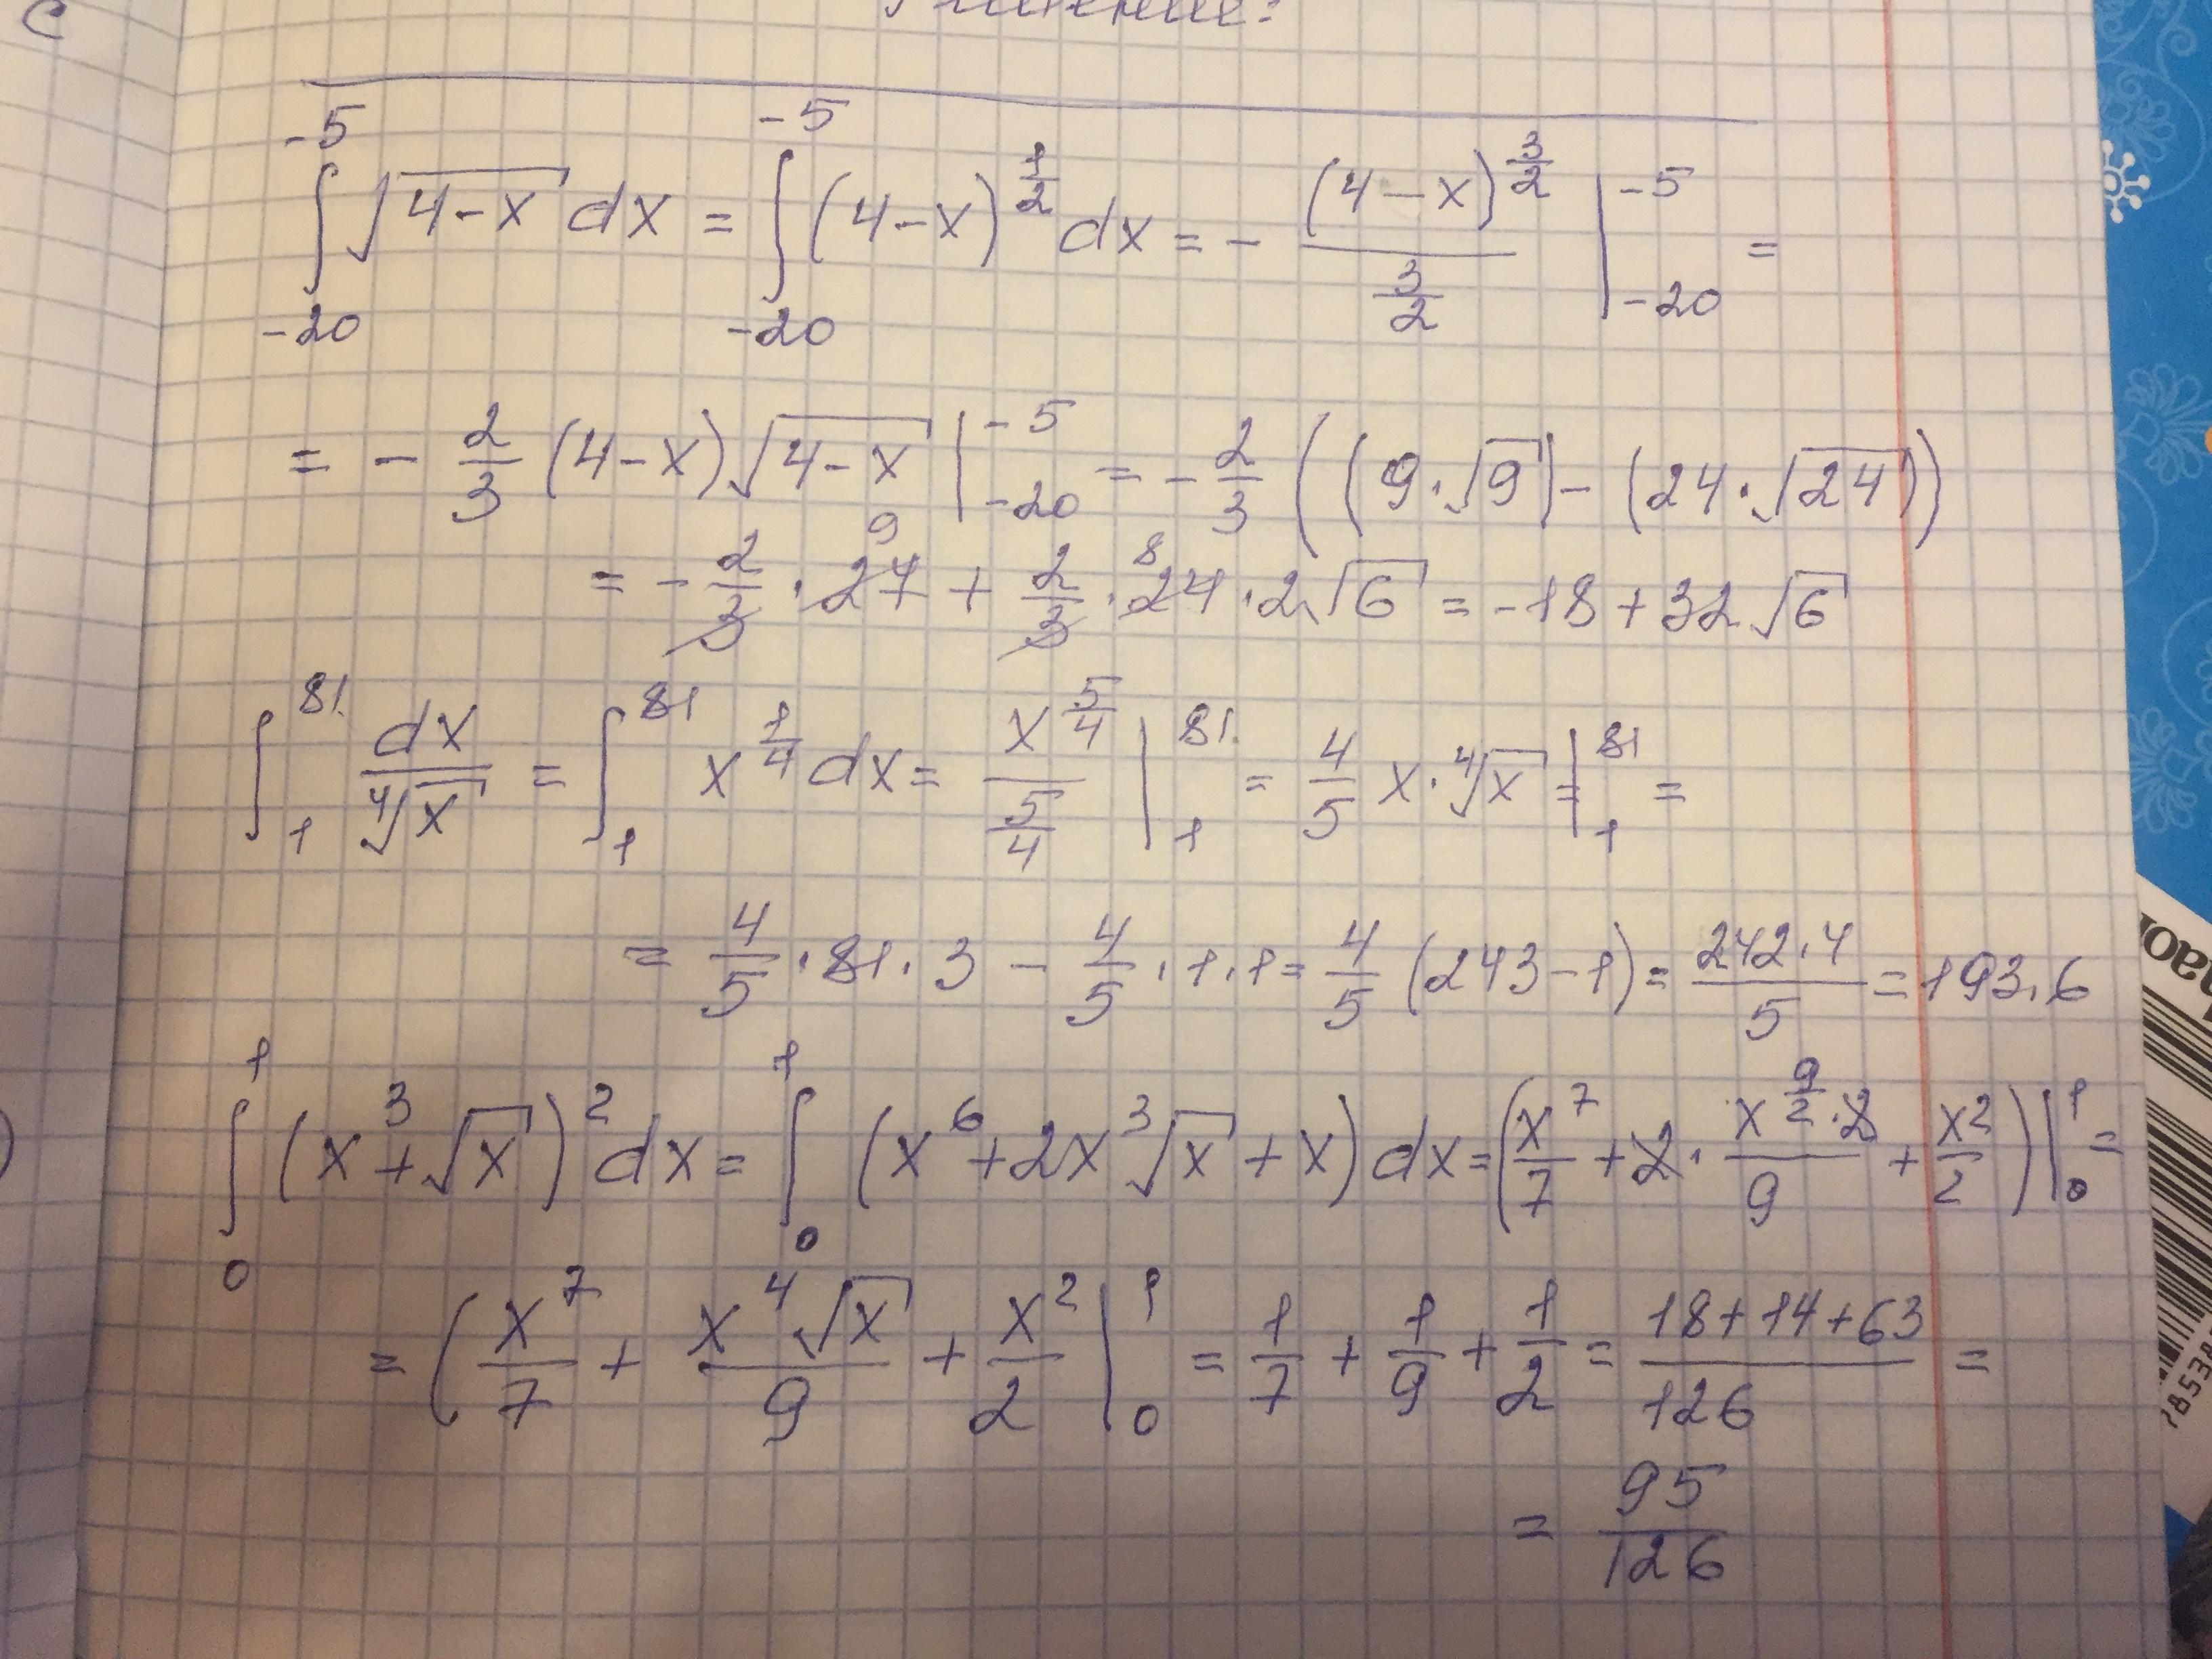 ∫_{-20}^{-5} √(4-x) dx = ∫_{-20}^{-5} (4-x)^{1/2} dx = - (4-x)^{3/2} / (3/2) |_{-20}^{-5} =
= - 2/3 (4-x)√(4-x) |_{-20}^{-5} = - 2/3 ((9·√9) - (24·√24))
= - 2/3 · 27 9 + 2/3 · 24 8 · 2√6 = -18 + 32√6
∫_1^{81} dx/∜x = ∫_1^{81} x^{1/4} dx = x^{5/4} / (5/4) |_1^{81} = 4/5 x·∜x = |_1^{81} =
= 4/5 · 81 · 3 - 4/5 · 1 · 1 = 4/5 (243-1) = 242·4 / 5 = 193,6
∫_0^1 (x^3+√x)^2 dx = ∫_0^1 (x^6 + 2x^3√x + x) dx = (x^7/7 + 2 · x^{9/2}·2 / 9 + x^2/2) |_0^1 =
= (x^7/7 + x^4√x / 9 + x^2/2 |_0^1 = 1/7 + 1/9 + 1/2 = (18+14+63)/126 =
= 95/126